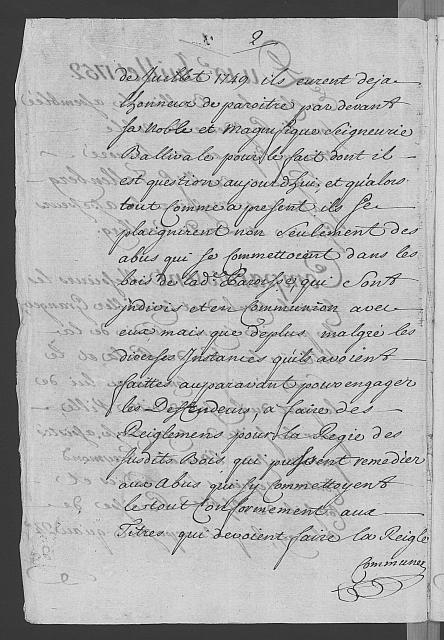 2
de Juillet 1749 ils eurent deja
lhonneur de paroitre par devant
sa Noble et magnifique Seigneurie
Ballivale pour le fait dont il
est question aujourdhui, et qualors
tout comme a present ils se
plaignirent non seulement des
abus qui se commettoient dans les
bois de lad.e Paroisse, qui sont
indivis et en Communion avec
eux mais que deplus malgré les
diverses Instances quils avoient
faittes auparavant pour engager
les Deffendeurs, a faire des
Reiglemens pour la Regie des
susdits Bois, qui pussent remedier
aux Abus qui sy Commettoyent
le tout Conformement aux
Titres qui devoient faire la Reigle
Commune